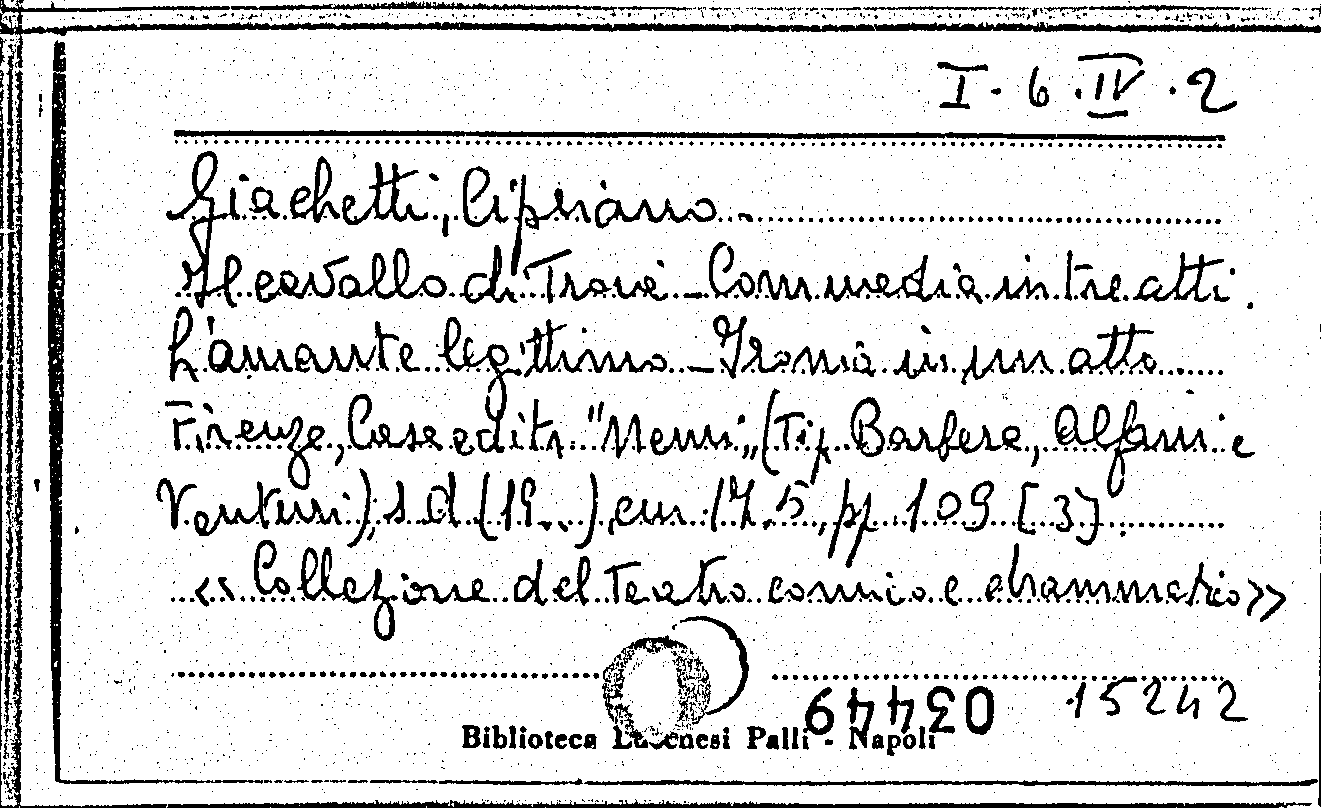 I. 6. IV. 2
Giachetti, Cipriano.
Il cavallo di Troia - Commedia in tre atti.
L'amante legittimo - Ironia in un atto.
Firenze, Casa editr. "Nemi" (Tip. Barbera, Alfani e
Venturi), s. d. (19..), cm. 17.5, pp. 109 [3].
<< Collezione del Teatro comico e drammatico >>
03449 15242
Biblioteca Lucchesi Palli - Napoli